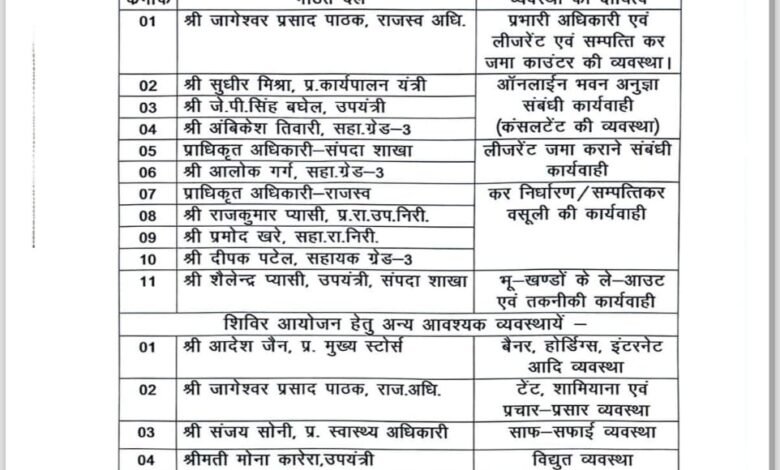 क्रमांक गठित दल व्यवस्था का दायित्व
01 श्री जागेश्वर प्रसाद पाठक, राजस्व अधि. प्रभारी अधिकारी एवं
लीजरेंट एवं सम्पत्ति कर
जमा काउंटर की व्यवस्था।
02 श्री सुधीर मिश्रा, प्र.कार्यपालन यंत्री ऑनलाईन भवन अनुज्ञा
03 श्री जे.पी.सिंह बघेल, उपयंत्री संबंधी कार्यवाही
04 श्री अंबिकेश तिवारी, सहा.ग्रेड–3 (कंसलटेंट की व्यवस्था)
05 प्राधिकृत अधिकारी–संपदा शाखा लीजरेंट जमा कराने संबंधी
06 श्री आलोक गर्ग, सहा.ग्रेड–3 कार्यवाही
07 प्राधिकृत अधिकारी–राजस्व कर निर्धारण/सम्पत्तिकर
08 श्री राजकुमार प्यासी, प्र.रा.उप.निरी. वसूली की कार्यवाही
09 श्री प्रमोद खरे, सहा.रा.निरी.
10 श्री दीपक पटेल, सहायक ग्रेड–3
11 श्री शैलेन्द्र प्यासी, उपयंत्री, संपदा शाखा भू–खण्डों के ले–आउट
एवं तकनीकी कार्यवाही
शिविर आयोजन हेतु अन्य आवश्यक व्यवस्थायें –
01 श्री आदेश जैन, प्र. मुख्य स्टोर्स बैनर, होर्डिंग्स, इंटरनेट
आदि व्यवस्था
02 श्री जागेश्वर प्रसाद पाठक, राज.अधि. टेंट, शामियाना एवं
प्रचार–प्रसार व्यवस्था
03 श्री संजय सोनी, प्र. स्वास्थ्य अधिकारी साफ–सफाई व्यवस्था
04 श्रीमती मोना कारेरा,उपयंत्री विद्युत व्यवस्था